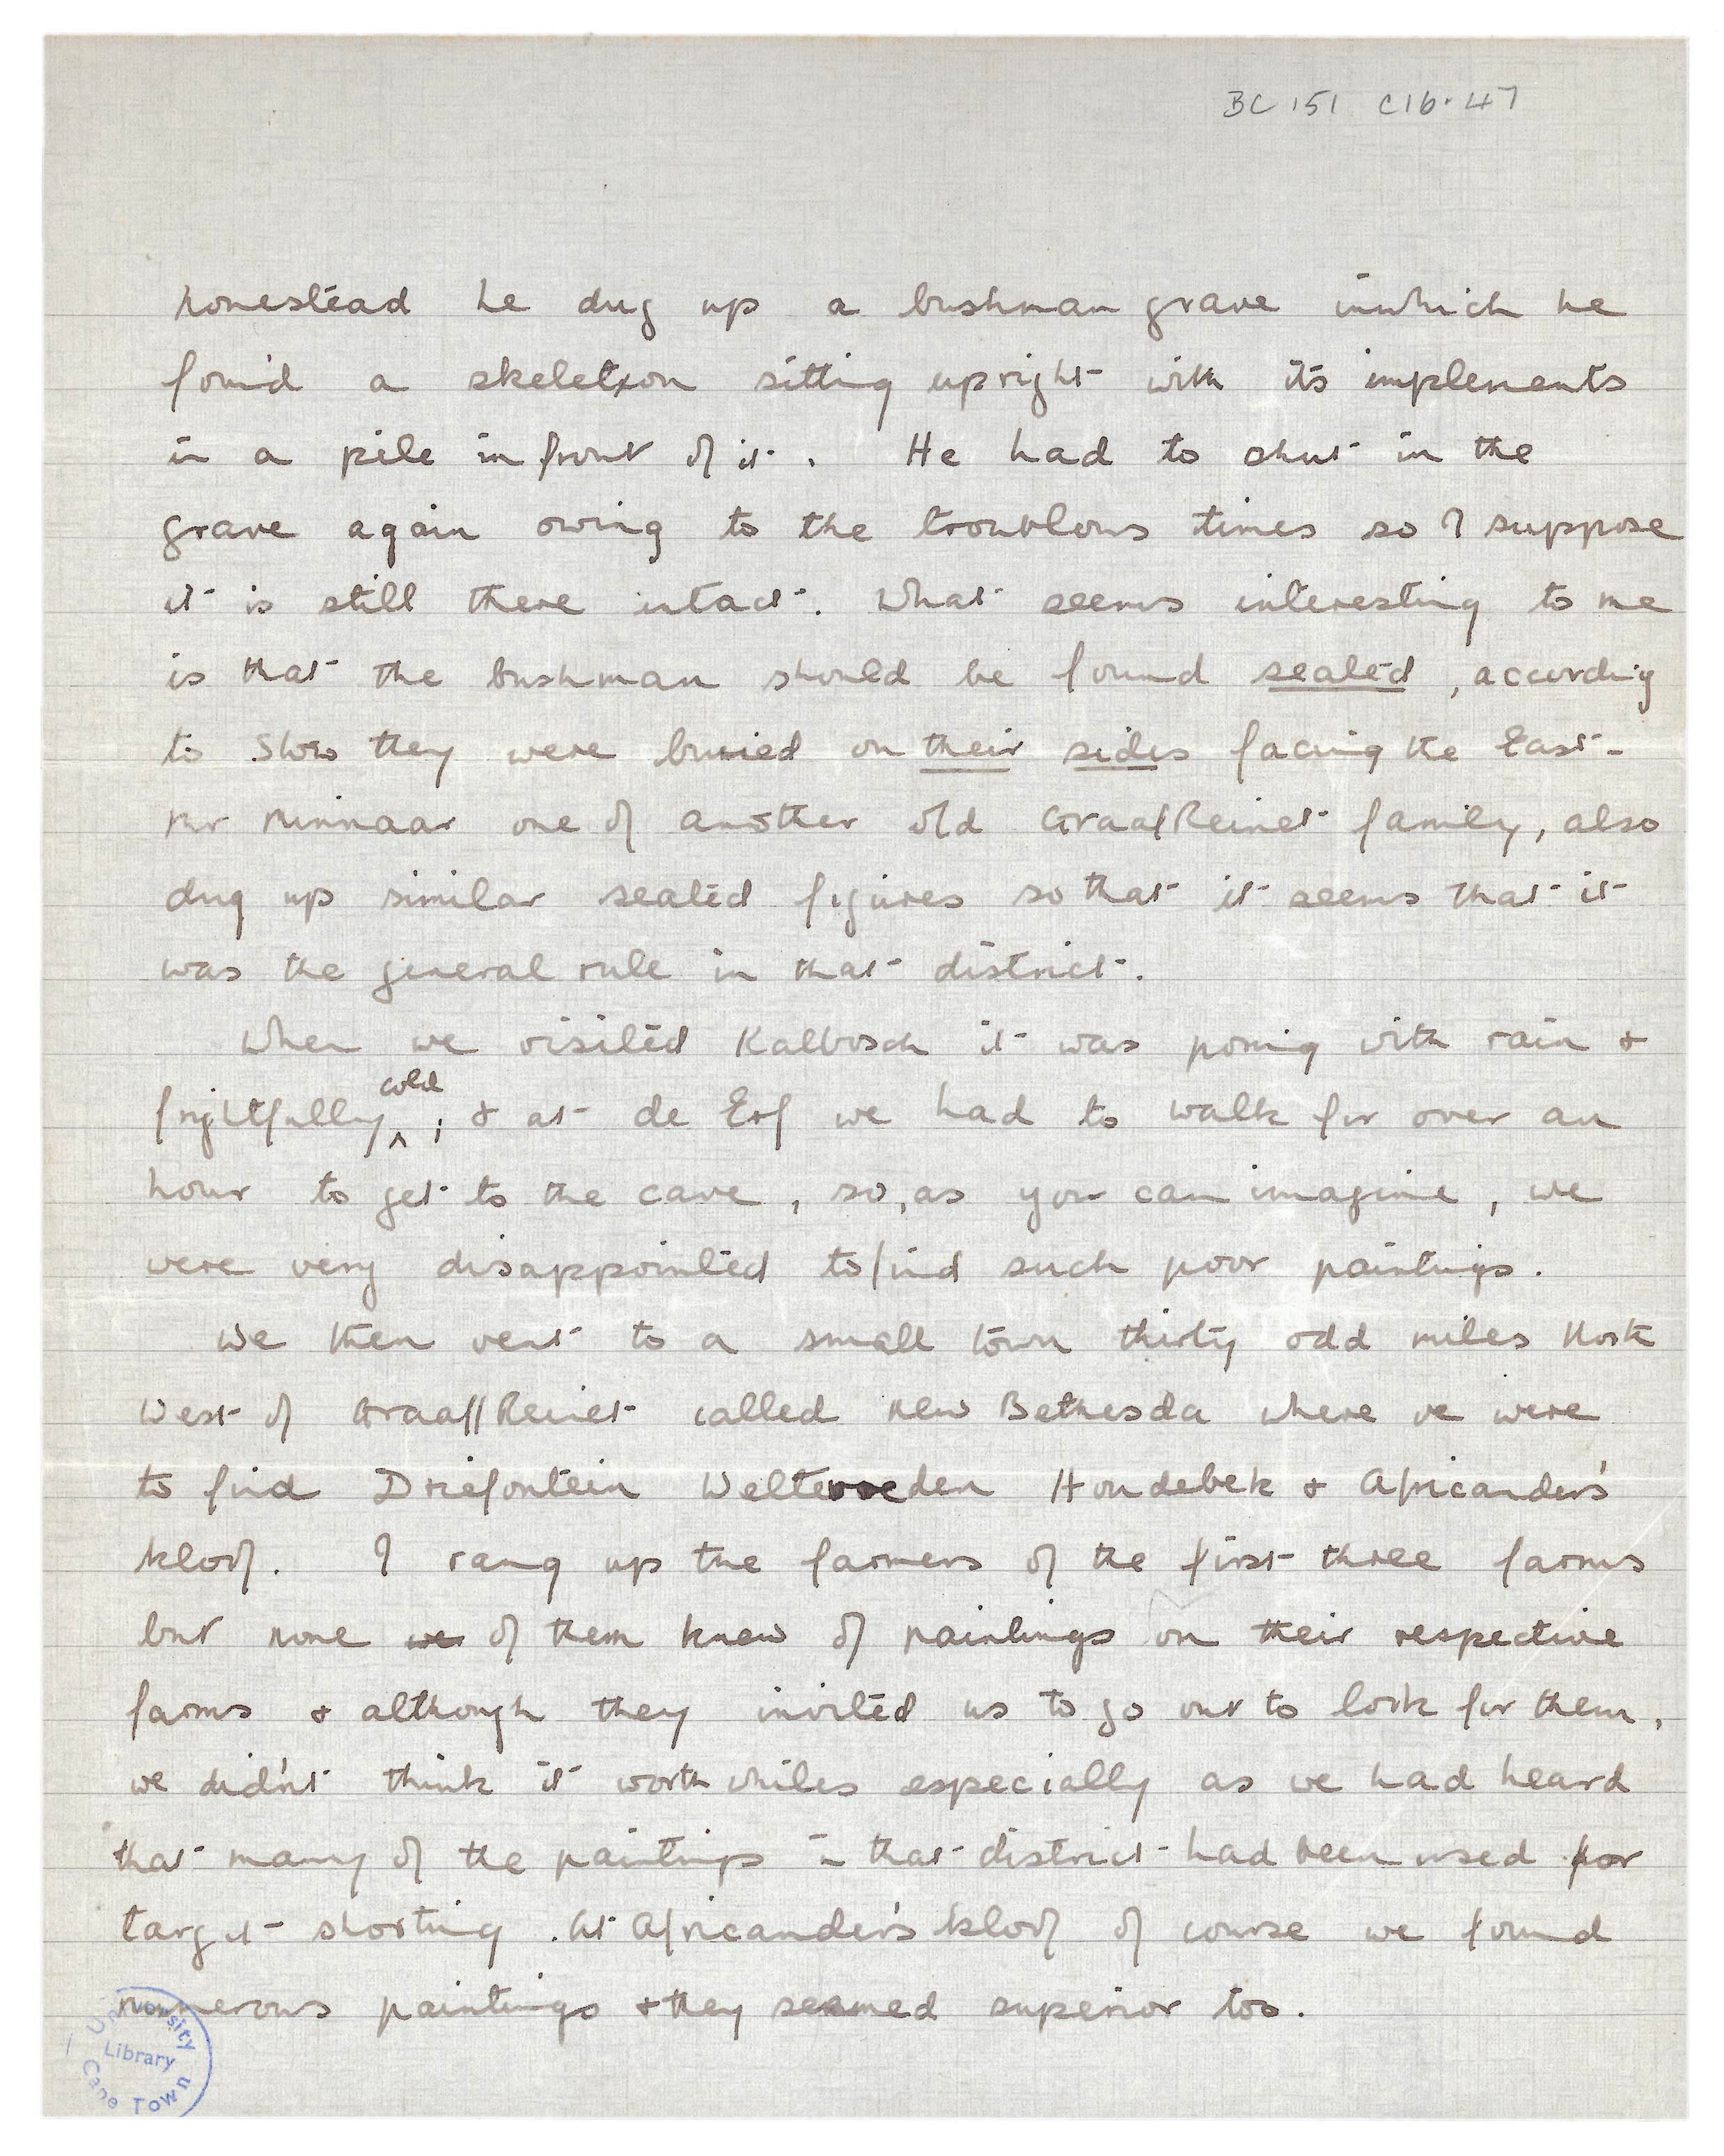 BC 151 C16.47
homestead he dug up a bushman grave in which he
found a skeleton sitting upright with its implements
in a pile in front of it. He had to shut in the
grave again owing to the troublous times so I suppose
it is still there intact. What seems interesting to me
is that the bushman should be found seated, according
to Stow they were buried on their sides facing the East.
Mr Minnaar one of another old Graaf Reinet family, also
dug up similar seated figures so that it seems that it
was the general rule in that district.
When we visited Kalbosch it was poring with rain &
frightfully cold; & at de Erf we had to walk for over an
hour to get to the cave, so, as you can imagine, we
were very disappointed to find such poor paintings.
We then went to a small town thirty odd miles North
West of Graaff Reinet called New Bethesda where we were
to find Driefontein Weltevreden Hondebek & Africander's
kloof. I rang up the farmers of the first three farms
but none of them knew of paintings on their respective
farms & although they invited us to go out to look for them,
we didn't think it worth whiles especially as we had heard
that many of the paintings in that district had been used for
target shooting. At Africander's kloof of course we found
numerous paintings & they seemed superior too.
University
Library
Cape Town